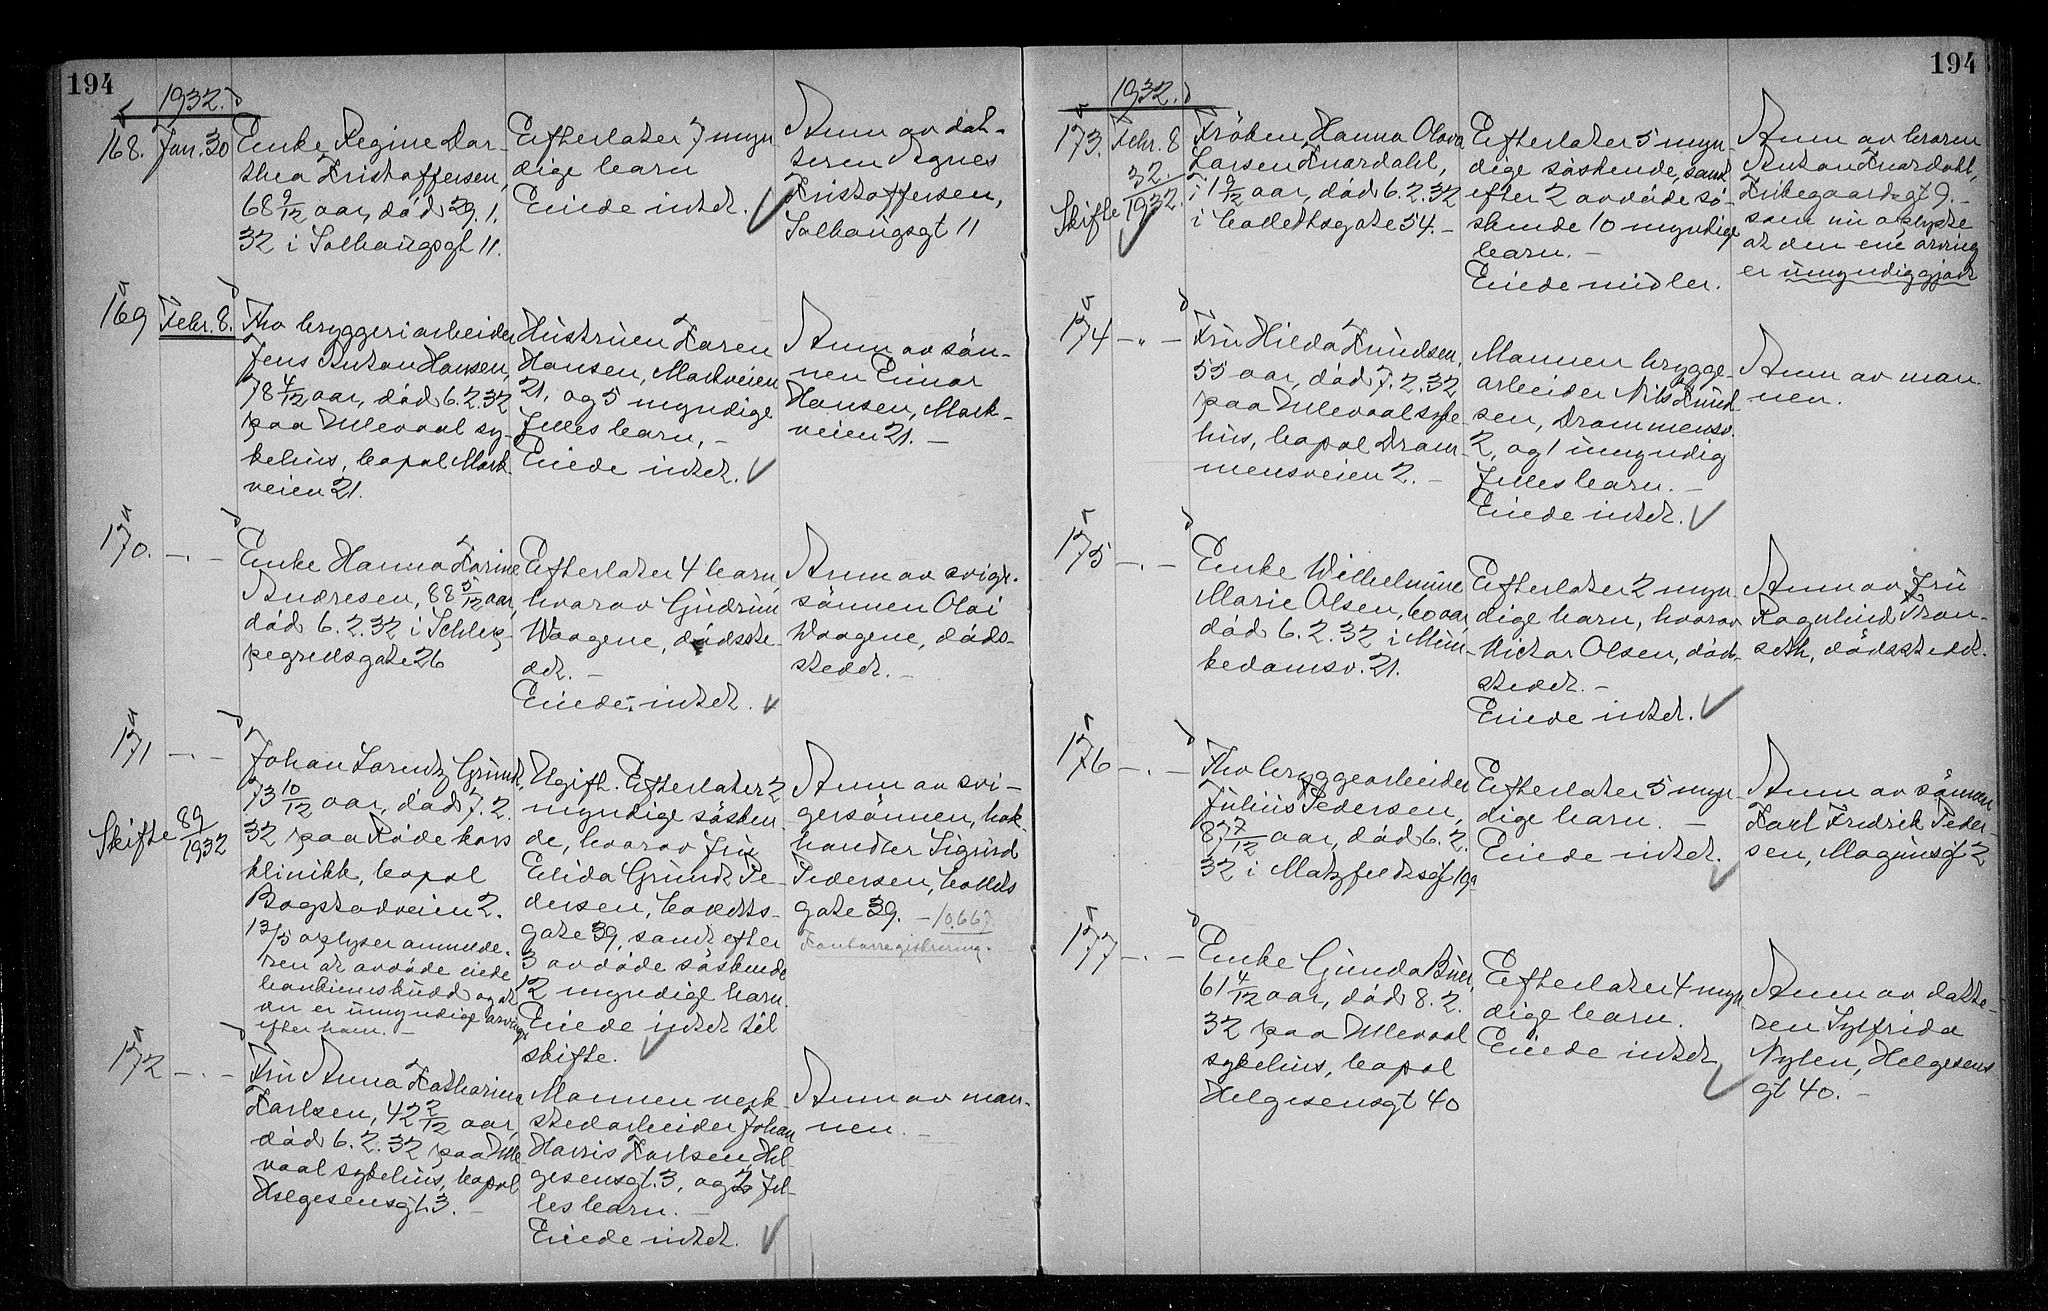 194
1932.
168. Jan. 30
Enke Regine Dor-
thea Kristoffersen,
68 9/12 aar, död 29.1.
32 i Solhaugsgt 11.
Efterlater 7 myn-
dige barn
Eiede intet.
Anm av dat-
teren Agnes
Kristoffersen,
Solhaugsgt 11
169 Febr. 8.
Fhv bryggeriarbeider
Jens Anton Hansen,
78 4/12 aar, död 6.2.32
paa Ullevaal sy-
kehus, bopæl Mark-
veien 21.
Hustruen Karen
Hansen, Markveien
21, og 5 myndige
felles barn. -
Eiede intet.
Anm av søn-
nen Einar
Hansen, Mark-
veien 21. -
170. -.-
Enke Hanna Karine
Andresen, 88 5/12 aar,
död 6.2.32 i Schlep-
pegrellsgate 26
Efterlater 4 barn,
hvorav Gudrun
Waagene, dødsste-
det. -
Eiede intet.
Anm av svige-
sönnen Olai
Waagene, döds-
stedet. -
171 -.-
Skifte 89/1932
Johan Lorentz Grundt,
73 10/12 aar, död 7.2.
32 paa Röde kors
klinikk, bopæl
Bogstadveien 2.
13/5 oplyser anmelde-
ren at avdöde eiede
bankinnskudd og at
der er umyndige arvinger
efter ham. -
Ugift. Efterlater 2
myndige sösken-
de, hvorav fru
Elida Grundt Pe-
dersen, Colletts-
gate 39, samt efter
3 avdöde söskende
12 myndige barn.
Eiede intet til
skifte.
Anm av svi-
gersönnen, bok-
handler Sigurd
Pedersen, Colletts
gate 39. - 10.667
Kontorregistrering.
172 -.-
Fru Anna Katharina
Karlsen, 42 2/12 aar,
död 6.2.32 paa Ulle-
vaal sykehus, bopæl
Helgesensgt. 3. -
Mannen verk-
stedarbeider Johan
Harris Karlsen, Hel-
gesensgt. 3, og 2 fel-
les barn. -
Eiede intet.
Anm av man-
nen. -
194
1932.
173. Febr. 8
Skifte 32./1932.
Fröken Hanna Olava
Larsen Knardahl,
71 9/12 aar, död 6.2.32
i Collettsgate 54. -
Efterlater 5 myn-
dige söskende, samt
efter 2 avdöde sö-
skende 10 myndige
barn. -
Eiede midler.
Anm av broren
Anton Knardahl,
Kirkegaardsgt 9. -
som nu oplyste
at den ene arving
er umyndiggjort
174 -"-
Fru Hilda Knudsen,
55 aar, död 7.2.32
paa Ullevaal syke-
hus, bopæl Dram-
mensveien 2. -
Mannen brygge-
arbeider Nils Knud-
sen, Drammensv.
2, og 1 umyndig
felles barn. -
Eiede intet.
Anm av man-
nen.
175 -.-
Enke Wilhelmine
Marie Olsen, 60 aar,
död 6.2.32 i Mun-
kedamsv. 21.
Efterlater 2 myn-
dige barn, hvorav
Victor Olsen, döds-
stedet. -
Eiede intet.
Anm av fru
Ragnhild Tran-
seth, dödsstedet.
176 -.-
Fhv bryggearbeider
Julius Pedersen,
87 7/12 aar, död 6.2.
32 i Motzfeldtsgt 19a
Efterlater 5 myn-
dige barn. -
Eiede intet.
Anm av sönnen
Karl Fredrik Peder-
sen, Magnusgt 2
177 -.-
Enke Gunda Buer,
61 4/12 aar, död 8.2.
32 paa Ullevaal
sykehus, bopæl
Helgesensgt 40
Efterlater 4 myn-
dige barn.
Eiede intet
Anm av datte-
ren Sylfrida
Nylen, Helgesens
gt 40. -